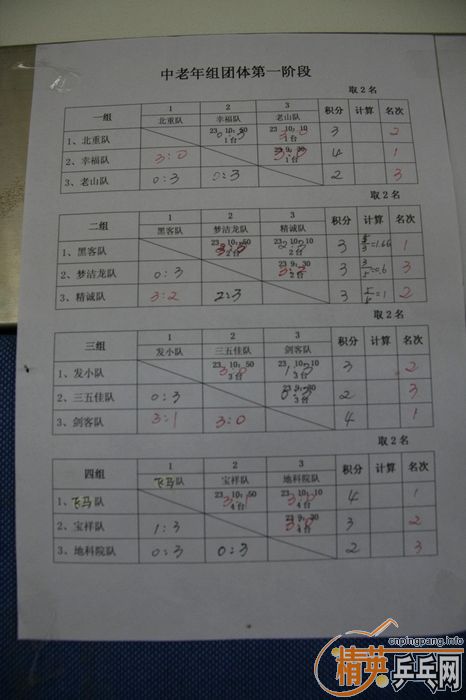 中老年组团体第一阶段
取2名
一组 1 北重队 2 幸福队 3 老山队 积分 计算 名次
1、北重队 23 10：50 1台 0:3 23 10：10 1台 3:0 3 2
2、幸福队 3:0 23 9：30 1台 3:0 4 1
3、老山队 0:3 0:3 2 3
取2名
二组 1 黑客队 2 梦洁龙队 3 精诚队 积分 计算 名次
1、黑客队 23 10：50 2台 3:0 23 10：10 2台 2:3 3 5/3=1.66 1
2、梦洁龙队 0:3 23 9：30 2台 3 3/5=0.6 3
3、精诚队 3:2 2:3 3 =1 2
取2名
三组 1 发小队 2 三五佳队 3 剑客队 积分 计算 名次
1、发小队 23 10：50 3台 3:0 23 10：10 3台 1:3 3 2
2、三五佳队 0:3 23 9：30 3台 0:3 2 3
3、剑客队 3:1 3:0 4 1
取2名
四组 1 飞马队 2 宝祥队 3 地科院队 积分 计算 名次
1、飞马队 23 10：50 4台 3:1 23 10：10 4台 3:0 4 1
2、宝祥队 1:3 23 9：30 4台 3:0 3 2
3、地科院队 0:3 0:3 2 3
cnpingpang.info
精英乒乓网